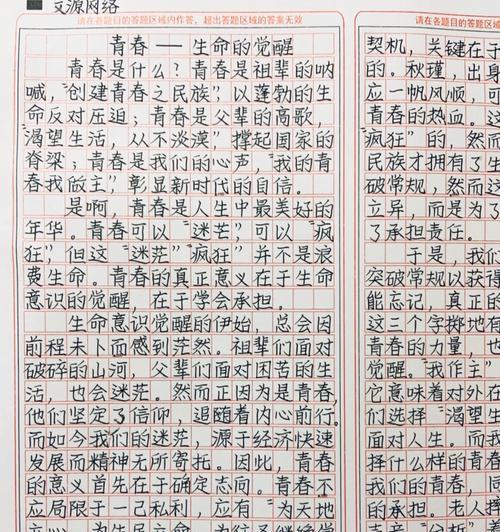 文源网络
请在各题目的答题区域内作答，超出答题区域的答案无效
青春——生命的觉醒
青春是什么？青春是祖辈的呐
喊，“创建青春之民族”以蓬勃的生
命反对压迫；青春是父辈的高歌，
“渴望生活，从不淡漠”撑起国家的
脊梁；青春是我们的心声，“我的青
春我做主”彰显新时代的自信。
是啊，青春是人生中最美好的
年华。青春可以“迷茫”可以“疯
狂”，但这“迷茫”“疯狂”并不是浪
费生命。青春的真正意义在于生命
意识的觉醒，在于学会承担。
生命意识觉醒的伊始，总会因
前程未卜而感到茫然。祖辈们面对
破碎的山河，父辈们面对困苦的生
活，也会迷茫。然而正因为是青春，
他们坚定了信仰，追随着内心前行。
而如今我们的迷茫，源于经济快速
发展而精神无所寄托。因此，青春
的意义首先在于确定志向。青春不
应局限于一己私利，应有“为天地
请在各题目的答题区域
契机，关键在于
的。秋瑾，出身
应一帆风顺，可
青春的热血。这
疯狂”的，然而
民族才拥有了生
破常规，然而这
立异，而是为了
了承担责任。
于是，我们
突破常规以获得
能忘记，真正的
这三个字掷地有
青春的力量，也
觉醒。“我作主”
它意味着对外在
们选择“渴望生
面对人生。而我
择什么样的青春
青春，我们同
的承担。老人